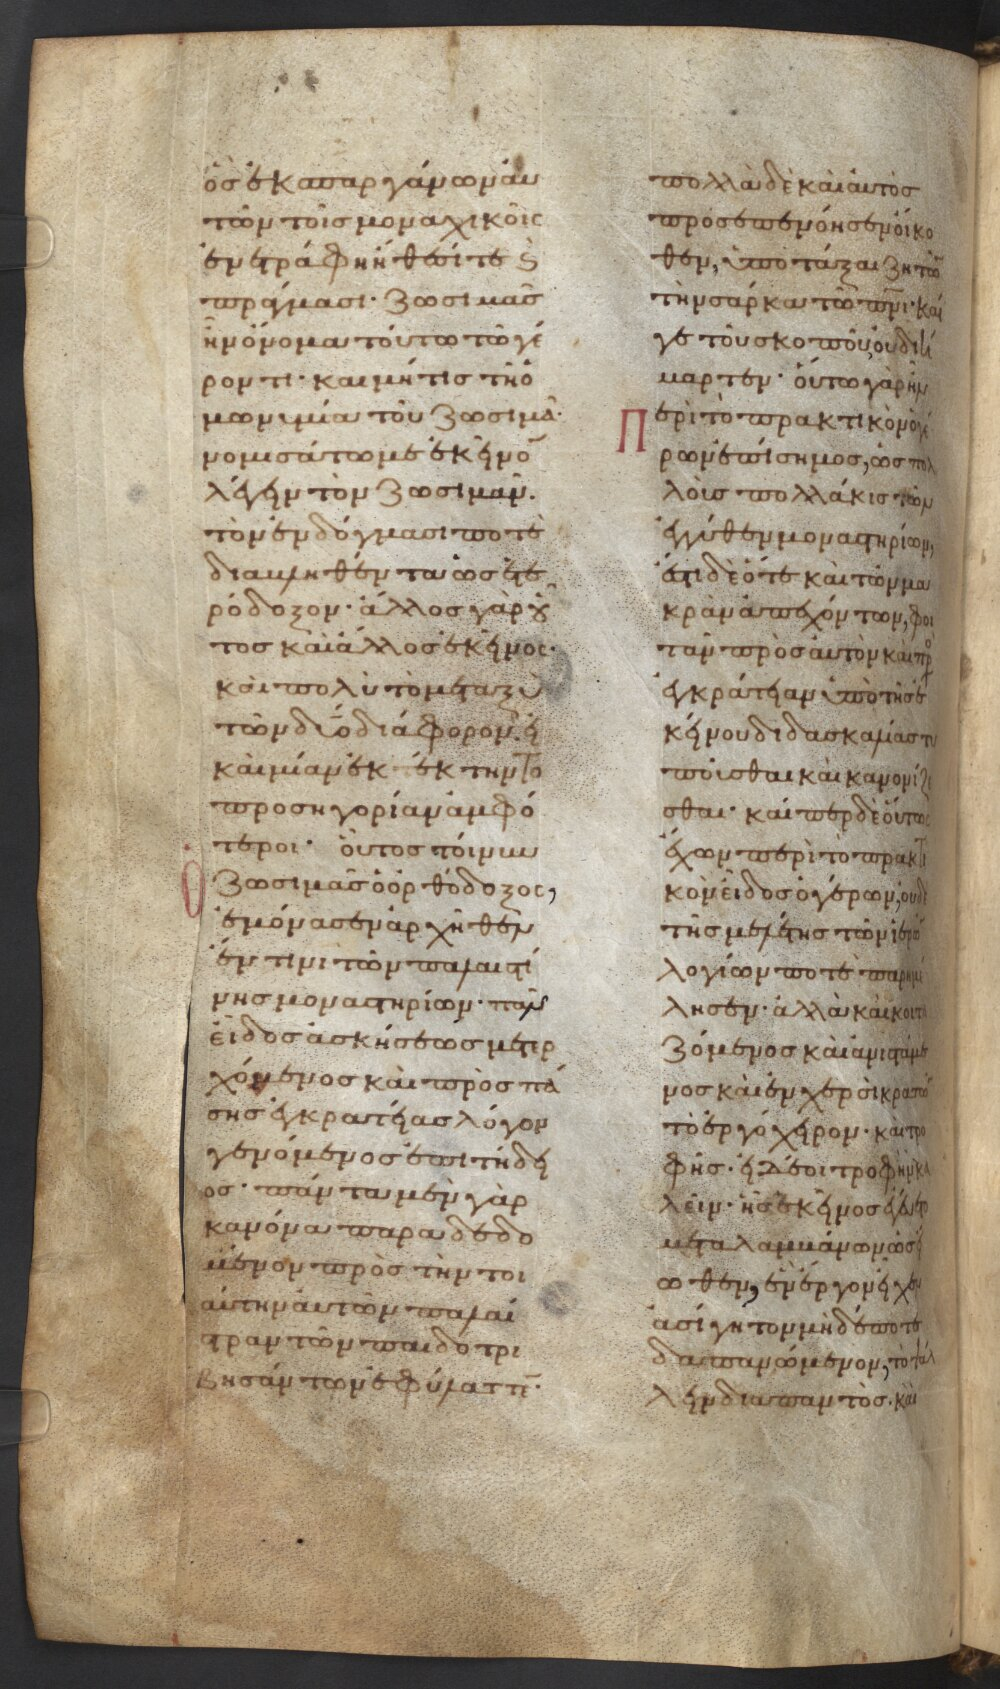 ὃς ἐκ σπαργάνων αὐ
τῶν τοῖς μοναχικοῖς
ἐνετράφη ἤθεσί τε ϗ
πράγμασι· Ζωσιμᾶς
ἦν ὄνομα τούτω τῶ γέ
ροντι· και μή τις τῆ ὁ
μωνυμία τοῦ Ζωσιμᾶ·
νομισάτω με ἐκεῖνο
λέγειν τὸν Ζωσιμᾶν.
τὸν ἐν δόγμασι ποτὲ
διαβληθέντα ὡς ἑτε
ρόδοξον· ἄλλος γὰρ οὗ
τος καὶ ἄλλος ἐκεῖνος·
καὶ πολὺ τὸ μεταξὺ
τῶν δύο διάφορον· εἰ
καὶ μίαν ἐκέκτηντο
προσηγορίαν ἀμφό
τεροι· οὗτος τοίνυν
Ζωσιμᾶς ὁ ὀρθόδοξος,
ἐμόνασεν ἀρχῆθεν
ἔν τινι τῶν παλαιστί
νης μοναστηρίων· πᾶν
εἶδος ἀσκήσεως μετερ
χόμενος καὶ πρὸς πά
σης ἐγκρατείας λόγον
γενόμενος ἐπιτήδει
ος· πάντα μὲν γὰρ
κανόνα παραδεδο
μένον πρὸς τὴν τοι
αύτην αὐτῶν παλαί
στραν τῶν παιδοτρι
βησάντων ἐφύλαττε·
πολλὰ δὲ καὶ αὐτὸς
προσεπενόησεν οἴκο
θεν, ὑποτάξαι ζητῶν
τὴν σάρκα τῶ πνι· καί
γε τοῦ σκοποῦ οὐ διή
μαρτεν· οὕτω γὰρ ἦν
Περὶ τὸ πρακτικὸν ὁ γέ
ρων ἐπίσημος, ὡς πολ
λοὺς πολλάκις τῶν
ἐγγύθεν μοναστηρίων,
ἔστι δὲ ὅτε καὶ τῶν μα
κρὰν ἀπεχόντων, φοι
τᾶν πρὸς αὐτὸν και προ
ἐγκράτειαν ὑπὸ τῆς ἐ
κείνου διδασκαλίας τυ
ποῦσθαι καὶ κανονίζε
σθαι· καίπερ δὲ οὕτως
ἔχων περὶ τὸ πρακτι
κὸν εἶδος ὁ γέρων, οὐδὲ
τῆς μελέτης τῶν ἱερῶ
λογίων ποτὲ παρημέ
λησεν· ἀλλὰ καὶ κοιτα
ζόμενος καὶ ἀνιστάμε
νος καὶ ἐν χερσὶ κρατῶν
τὸ ἐργόχειρον· καὶ τρο
φῆς· εἰ δέοι τροφὴν κα
λεῖν· ἧς ἐκεῖνος ἐγεύετο
μεταλαμβάνων ὡς εἰ
ωθεν, ἓν ἔργον εἶχεν
ἀσίγητον μηδέποτε
δαπανώμενον, τὸ ψάλ
λειν διαπαντὸς· καὶ